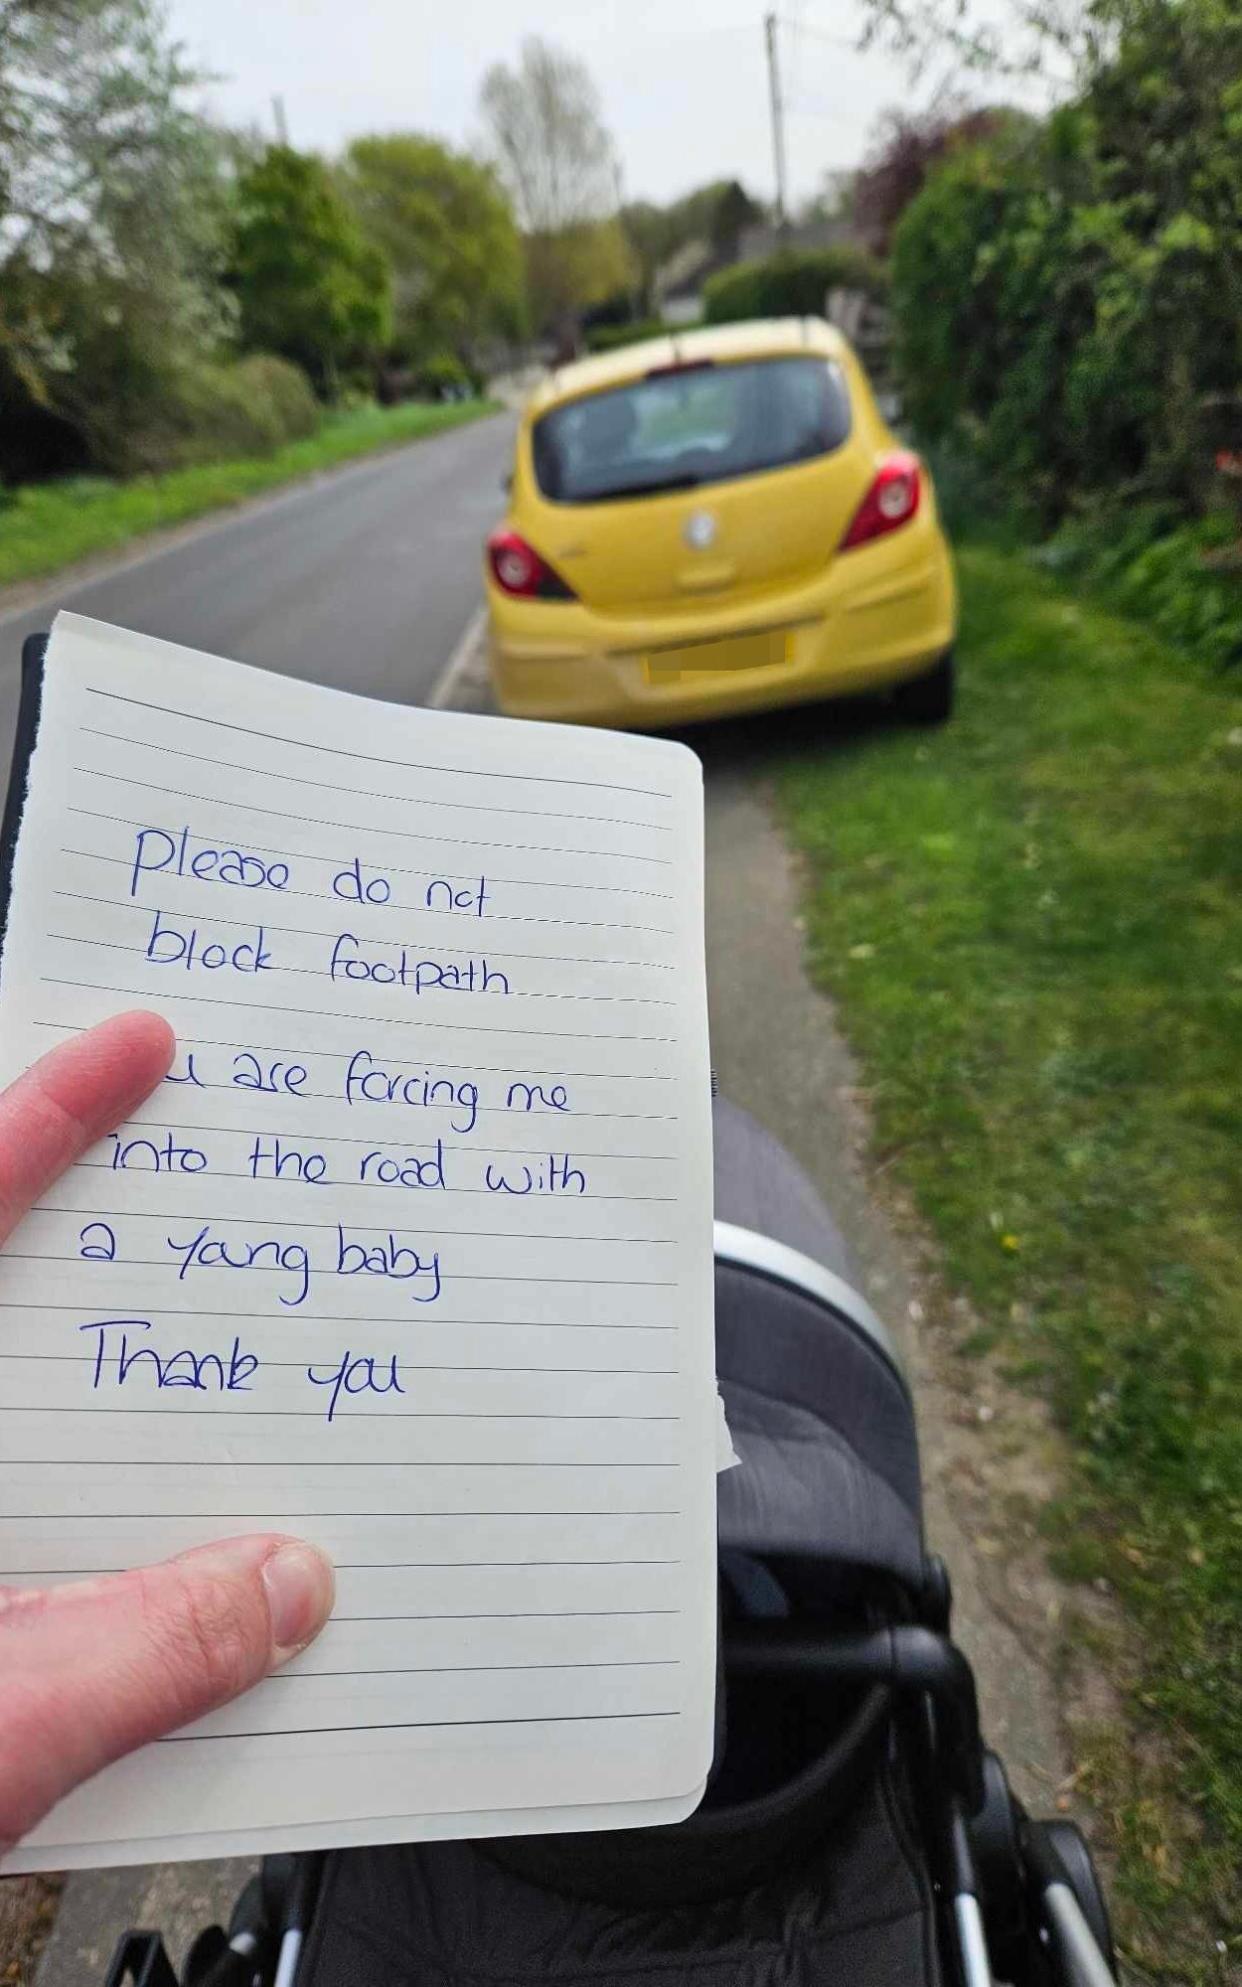 Please do not
block footpath
u are forcing me
into the road with
a young baby
Thank you